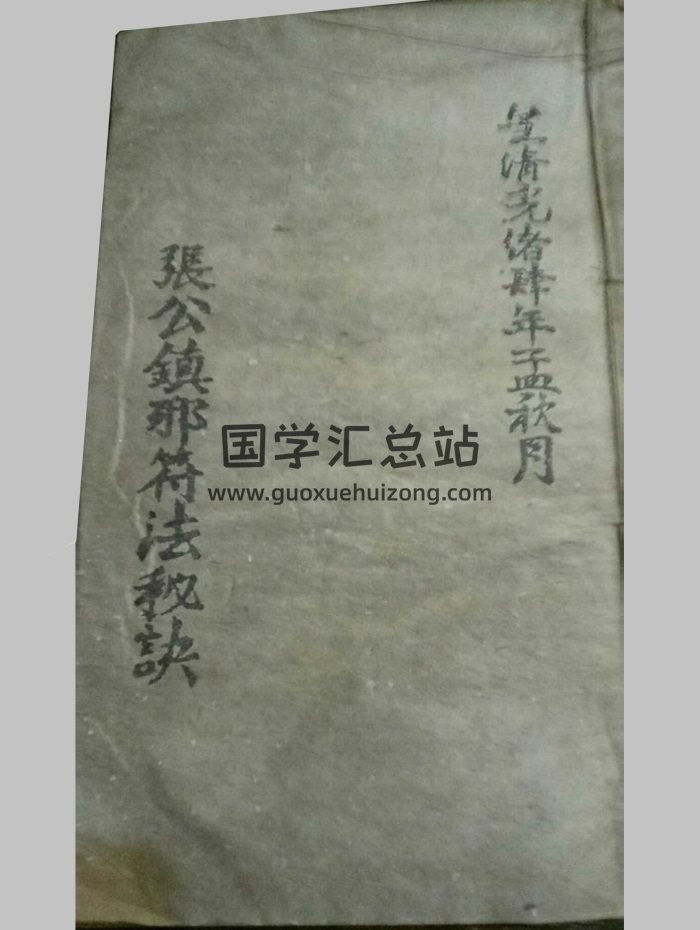 皇清光绪肆年孟秋月
張公鎮邪符法秘訣
国学汇总站
www.guoxuehuizong.com